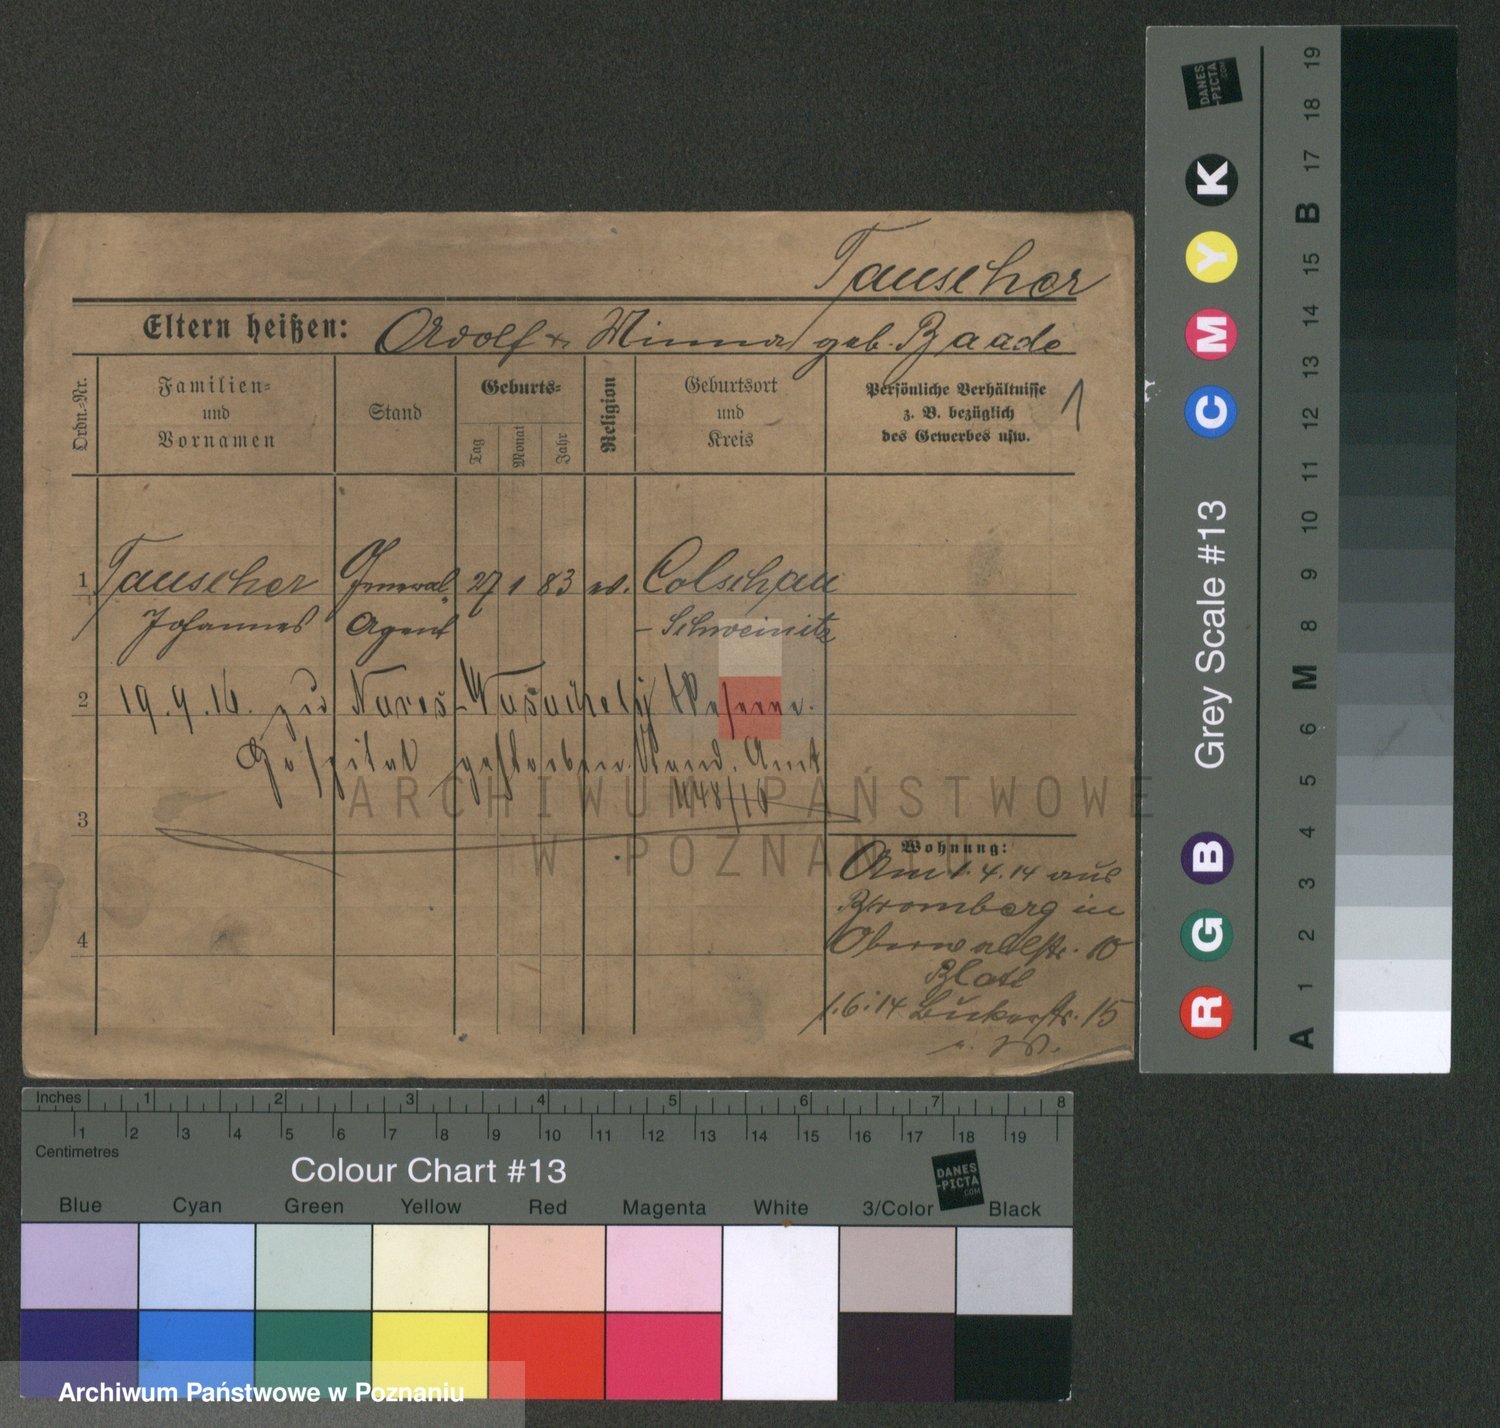 Tauscher
Eltern heißen: Adolf + Minna geb. Baade
Ordn.-Nr.
Familien-
und
Vornamen
Stand
Geburts-
Tag
Monat
Jahr
Religion
Geburtsort
und
Kreis
Persönliche Verhältnisse
z. B. bezüglich
des Gewerbes usw.
1
1 Tauscher General 27 1 83 ev. Colschau
Johannes Agent - Schweinitz
2 19.9.16. zu
Hospital gestorben. Stand. Amt
1148/16
3
4
Wohnung:
Am 1.4.14 aus
Bromberg in
Oberwallstr. 10
1.6.14 Bukerstr. 15
ARCHIWUM PAŃSTWOWE
W POZNANIU
DANES
-PICTA
.COM
K
Y
M
C
B
G
R
Grey Scale #13
A 1 2 3 4 5 6 M 8 9 10 11 12 13 14 15 B 17 18 19
Inches 1 2 3 4 5 6 7 8
1 2 3 4 5 6 7 8 9 10 11 12 13 14 15 16 17 18 19
Centimetres
Colour Chart #13
DANES
-PICTA
.COM
Blue Cyan Green Yellow Red Magenta White 3/Color Black
Archiwum Państwowe w Poznaniu